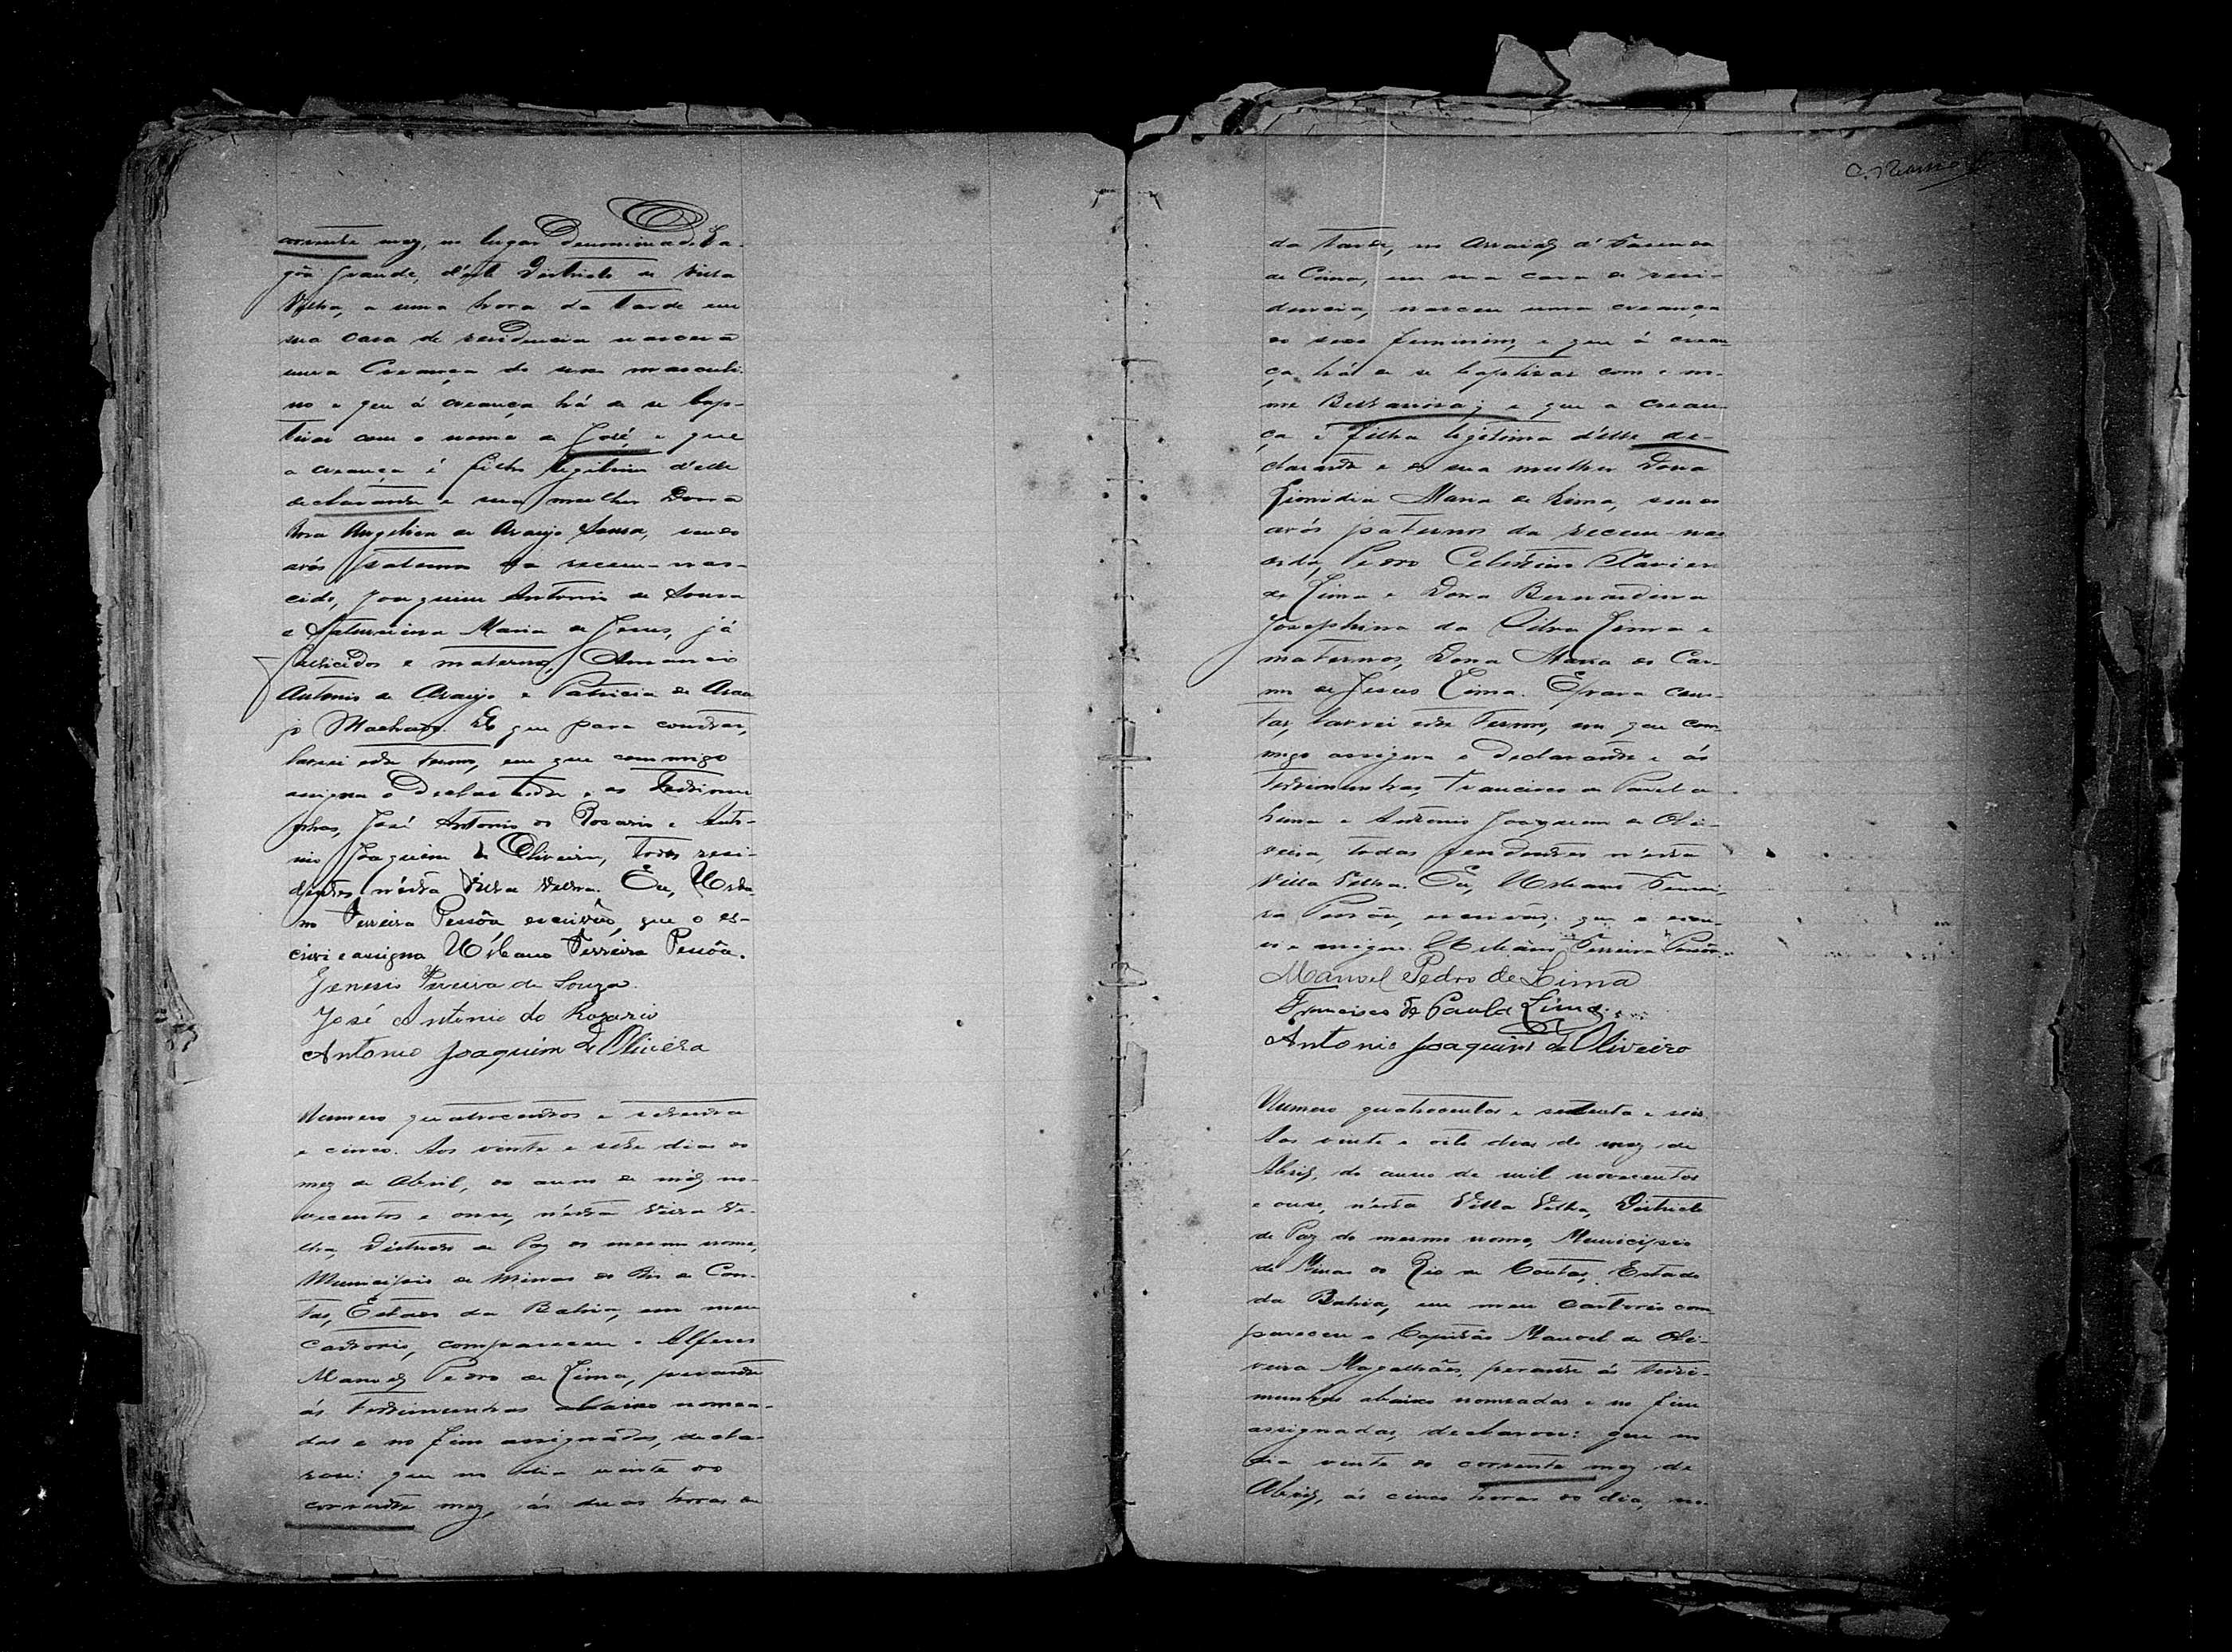 corrente mez, no lugar denominado La-
gôa grande, d'este Districto de Villa
Velha, a uma hora da tarde em
sua casa de residencia nascera
uma Creança do sexo masculi-
no e que á creança há de se bap-
tisar com o nome de José e que
a creança é filho legitimo d'elle
declarante e sua mulher Dona
Angelica de Araujo Sousa, sendo
avós paternos do recem-nas-
cido, Joaquim Antonio de Sousa
e Saturnina Maria de Jesus, já
fallicidos e maternos, Amancio
Antonio de Araujo e Patricia de Arau
jo Machado. E que para constar,
lavrei este termo, em que commigo
assigna o Declarante e as Testemu
nhas, José Antonio do Rosario e Anto-
nio Joaquim de Oliveira, todos resi-
dentes n'ésta Villa Velha. Eu, Urba
no Ferreira Pessôa escrivão, que o es-
crivi e assigno Urbano Ferreira Pessôa.
Jenesio Pereira de Souza.
José Antonio do Rozario
Antonio Joaquim de Oliveira
Numero quatrocentos e setenta
e cinco. Aos vinte e sete dias do
mez de Abril, do anno de mil no-
vecentos e onze, n'ésta Villa Ve-
lha, Districto de Paz do mesmo nome,
Municipio de Minas do Rio de Con-
tas, Estado da Bahia, em meu
Cartorio, compareceu o Alferes
Manoel Pedro de Lima, perante
ás testimunhas abaixo nomea-
das e no fim assignadas, decla-
rou: que no dia vinte do
corrente mez, ás duas horas da
C. Ramos
da tarde, no Arraial d' Fazenda
de Cima, em sua casa de resi-
dencia, nasceu uma creança
do sexo feminino, e que á crean-
ça há de se baptisar com o no-
me e que a crean-
ça é filha legitima d'elle de-
clarante e de sua mulher Dona
Maria de Lima, sendo
avós paternos da recem-nas
cida, Pedro Celestino Xavier
de Lima e Dona Bernardina
Josephina da Silva Lima e
maternos, Dona Maria do Car-
mo de Jesus Lima. E para cons-
tar, lavrei este Termo, em que com
migo assigna o declarante e ás
testimunhas, Francisco de Paula
Lima e Antonio Joaquim de Oli-
veira, todos residentes n'ésta
Villa Velha. Eu, Urbano Ferrei-
ra Pessôa, escrivão, que o escre-
vi e assigno. Urbano Ferreira Pessôa.
Manoel Pedro de Lima
Francisco de Paula Lima
Antonio Joaquim de Oliveiro
Numero quatrocentos e setenta e seis.
Aos vinte e oito dias do mez de
Abril, do anno de mil novecentos
e onze, n'ésta Villa Velha, Districto
de Paz do mesmo nome, Municipio
de Minas do Rio de Contas, Estado
da Bahia, em meu Cartorio com
pareceu o Capitão Manoel de Oli-
veira Magalhães, perante ás testi-
munhas abaixo nomeadas e no fim
assignadas, declarou: que no
dia vinte do corrente mez de
Abril, ás cinco horas do dia, no